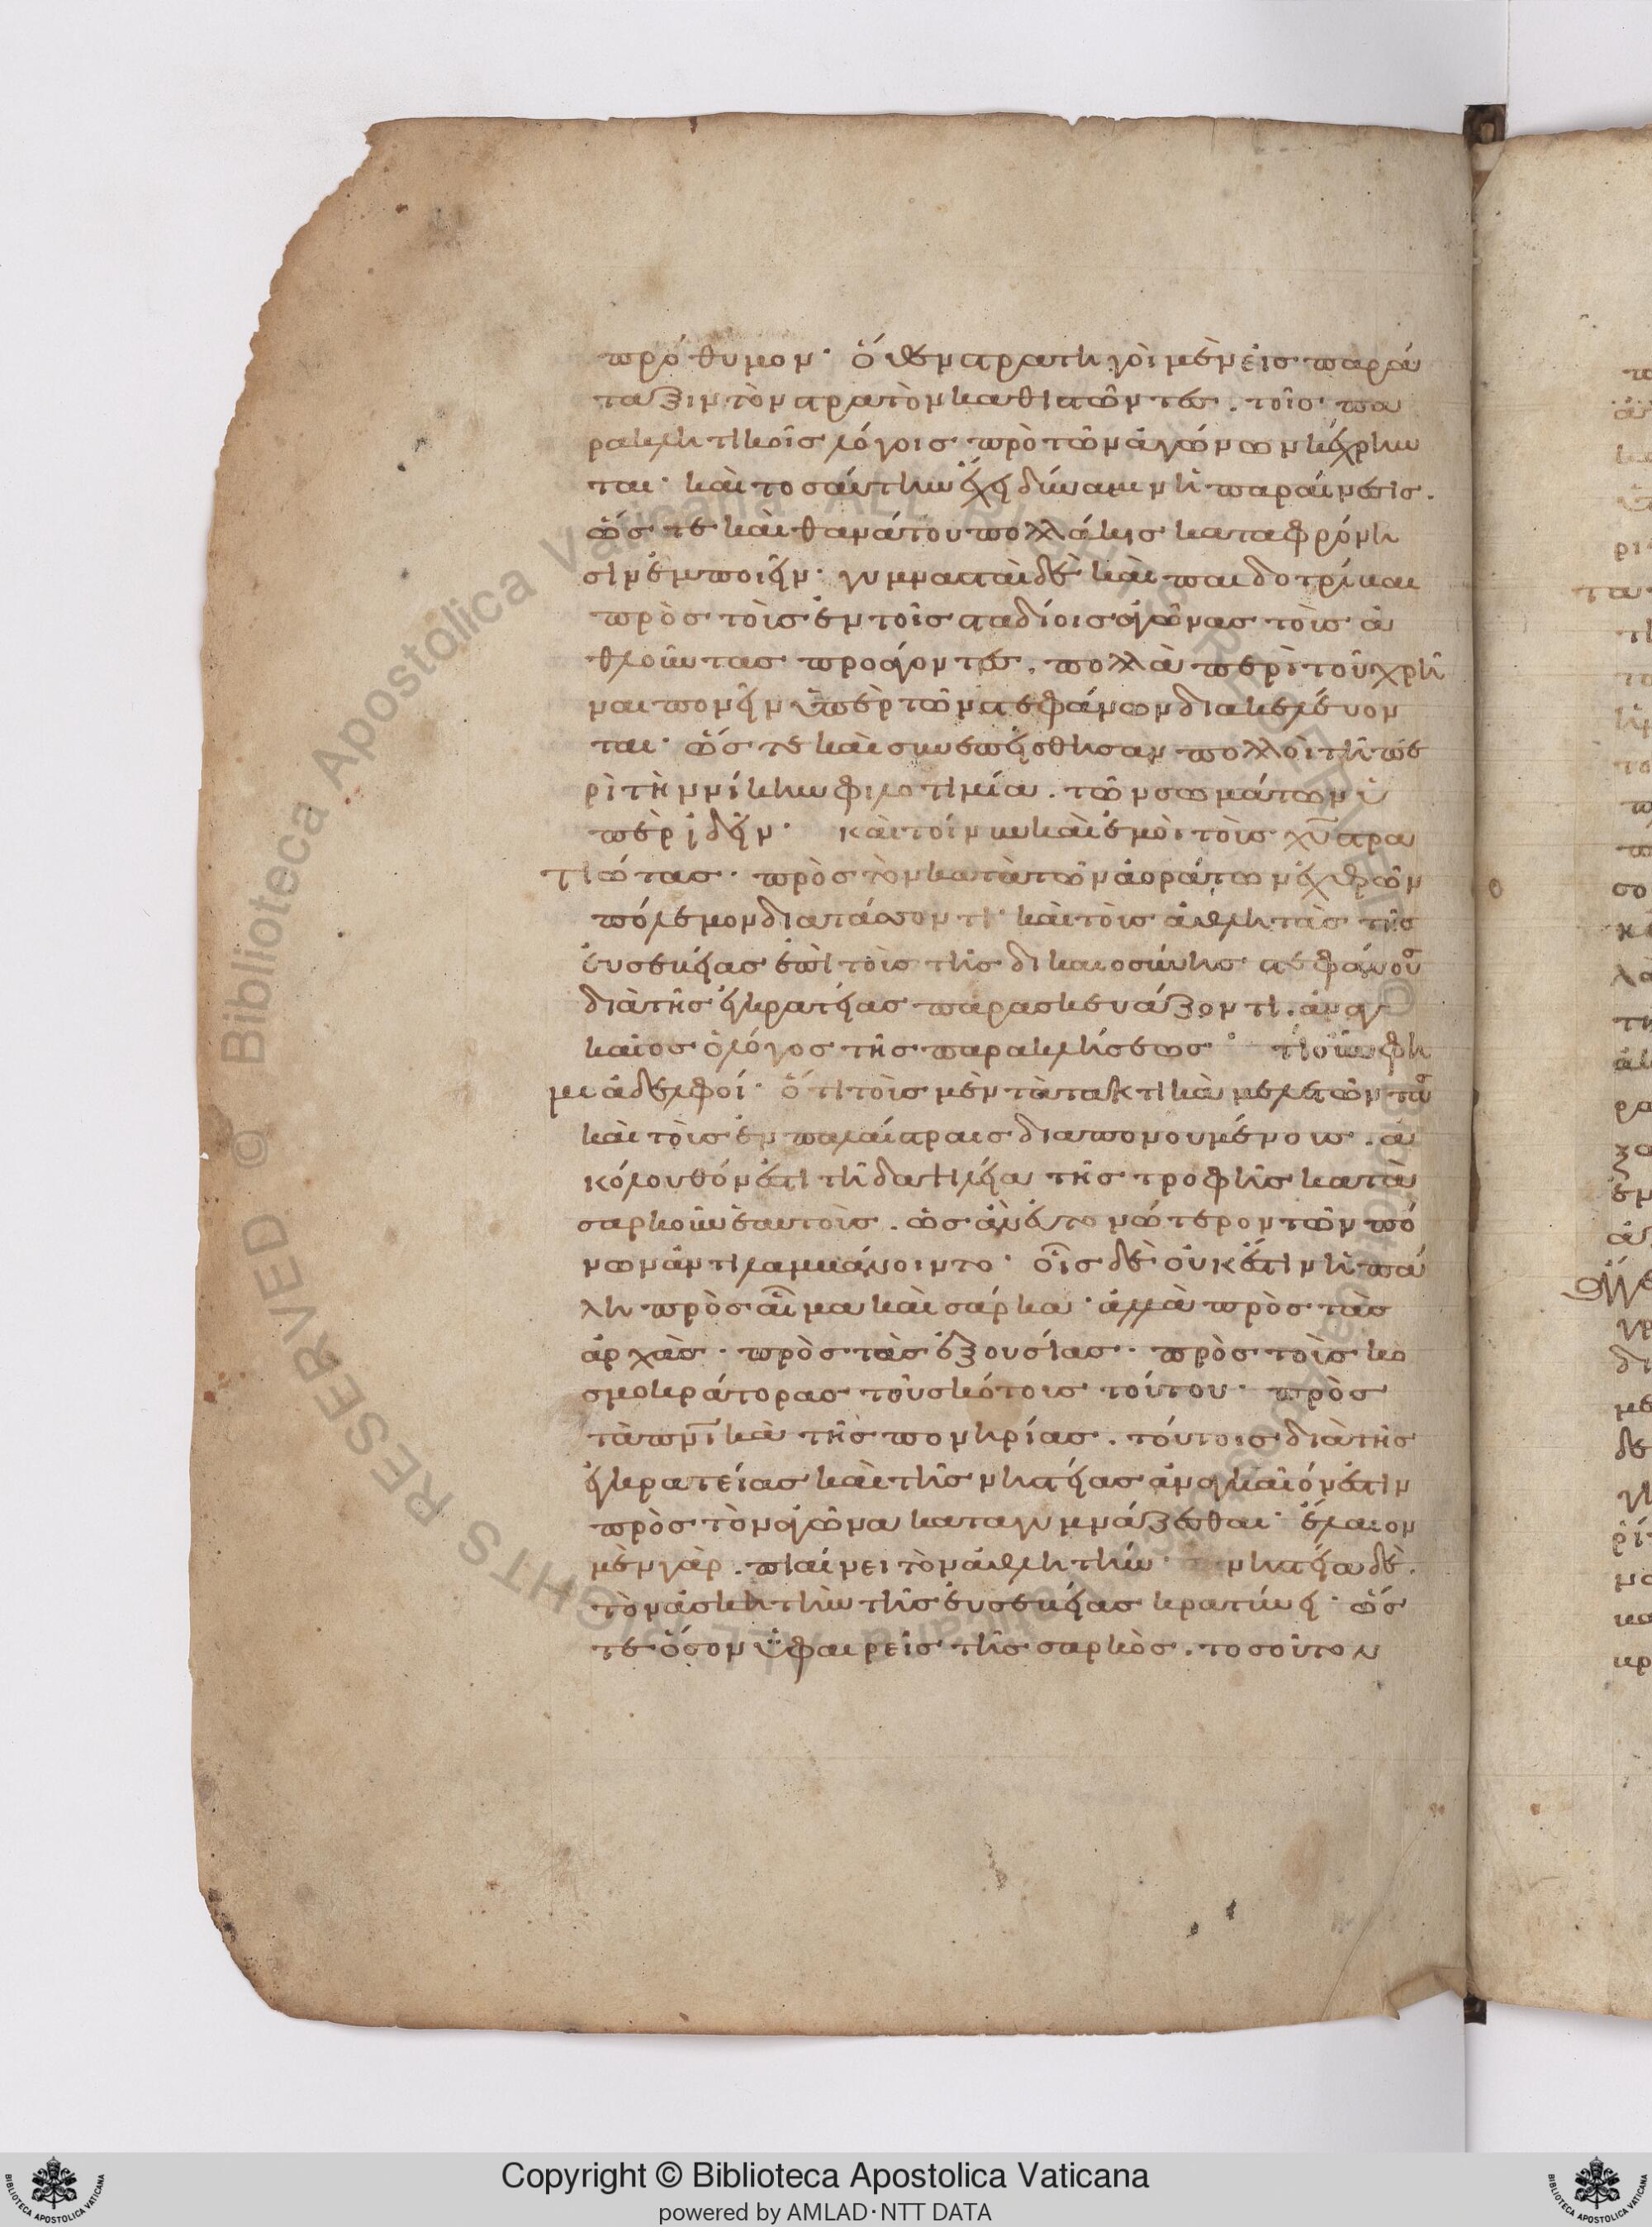 πρόθυμον· ὅθεν στρατηγοὶ μὲν εἰς παρά
ταξιν τὸν στρατὸν καθιστῶντες. τοῖς πα
ρακλητικοῖς λόγοις πρὸ τῶν ἀγώνων κέχρην
ται· καὶ τοσαύτην ἔχει δύναμιν ἡ παραίνεσις.
ὥς τε καὶ θανάτου πολλάκις καταφρόνη
σιν ἐμποιεῖν· γυμνασταὶ δὲ καὶ παιδοτρίβαι
πρὸς τοὺς ἐν τοῖς σταδίοις ἀγῶνας τοὺς ἀ
θλοῦντας προάγοντες. πολλὰ περὶ τοῦ χρῆ
ναι πονεῖν ὑπὲρ τῶν στεφάνων διακελεύον
ται· ὥς τε καὶ συνεπείσθησαν πολλοὶ τῇ πε
ρὶ τὴν νίκην φιλοτιμία. τῶν σωμάτων ὑ
περιδεῖν· καὶ τοίνυν καὶ ἐμοὶ τοὺς χ̅υ̅ στρα
τιώτας· πρὸς τὸν κατὰ τῶν ἀοράτων ἐχθρῶν
πόλεμον διατάσσοντι· καὶ τοὺς ἀθλητὰς τῆς
εὐσεβείας ἐπὶ τοὺς τῆς δικαιοσύνης στεφάνους
διὰ τῆς ἐγκρατείας παρασκευάζοντι. ἀναγ
καῖος ὁ λόγος τῆς παρακλήσεως· τί οὖν φη
μι ἀδελφοί· ὅτι τοῖς μὲν τὰ τακτικὰ μελετῶντας
καὶ τοῖς ἐν παλαίστραις διαπονουμένοις. ἀ
κόλουθόν ἐστι τῇ δαψιλεία τῆς τροφῆς κατα
σαρκοῦν ἑαυτοὺς. ὡς ἂν εὐτονώτερον τῶν πό
νων ἀντιλαμβάνοιντο· οἷς δὲ οὐκ ἔστιν ἡ πά
λη πρὸς αἷμα καὶ σάρκα· ἀλλὰ πρὸς τὰς
ἀρχὰς· πρὸς τὰς ἐξουσίας· πρὸς τοὺς κο
σμοκράτορας τοῦ σκότους τούτου· πρὸς
τὰ π̅ν̅ι̅κὰ τῆς πονηρίας. τούτοις διὰ τῆς
ἐγκρατείας καὶ τῆς νηστείας ἀναγκαῖόν ἐστιν
πρὸς τὸν ἀγῶνα καταγυμνάζεσθαι· ἔλαιον
μὲν γὰρ. πιαίνει τὸν ἀθλητήν· νηστεία δὲ.
τὸν ἀσκητὴν τῆς εὐσεβείας κρατύνει· ὥς
τε ὅσον ὑφαιρεῖς τῆς σαρκὸς. τοσοῦτον
Copyright © Biblioteca Apostolica Vaticana
powered by AMLAD·NTT DATA